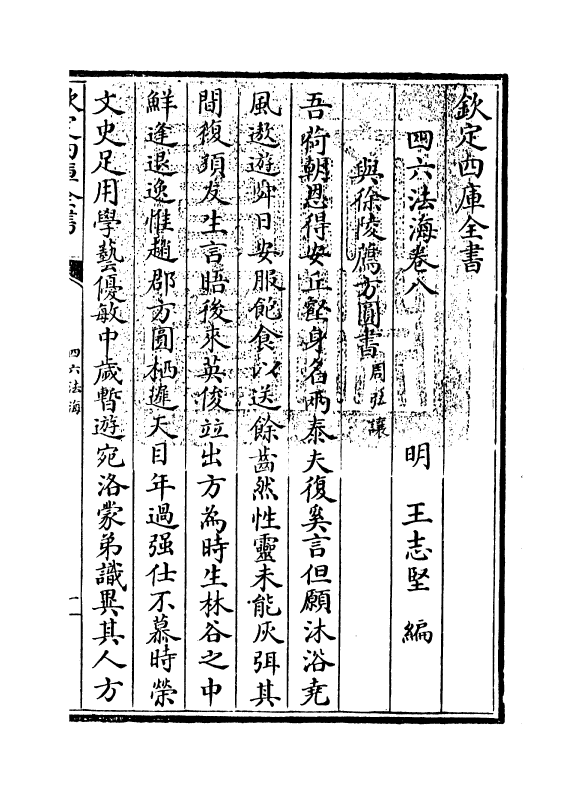 欽定四庫全書
四六法海卷八
明 王志堅 編
與徐陵薦方圓書 周弘讓
吾荷朝恩得安丘壑身名兩泰夫復奚言但願沐浴堯
風遨遊舜日安服飽食以送餘齒然性靈未能灰弭其
間復頗友生言晤後來英俊竝出方為時生林谷之中
鮮逢退逸惟趙郡方圓栖遲天目年過强仕不慕時榮
文史足用學藝優敏中歲暫遊宛洛蒙弟識異其人方
欽定四庫全書
四六法海
一